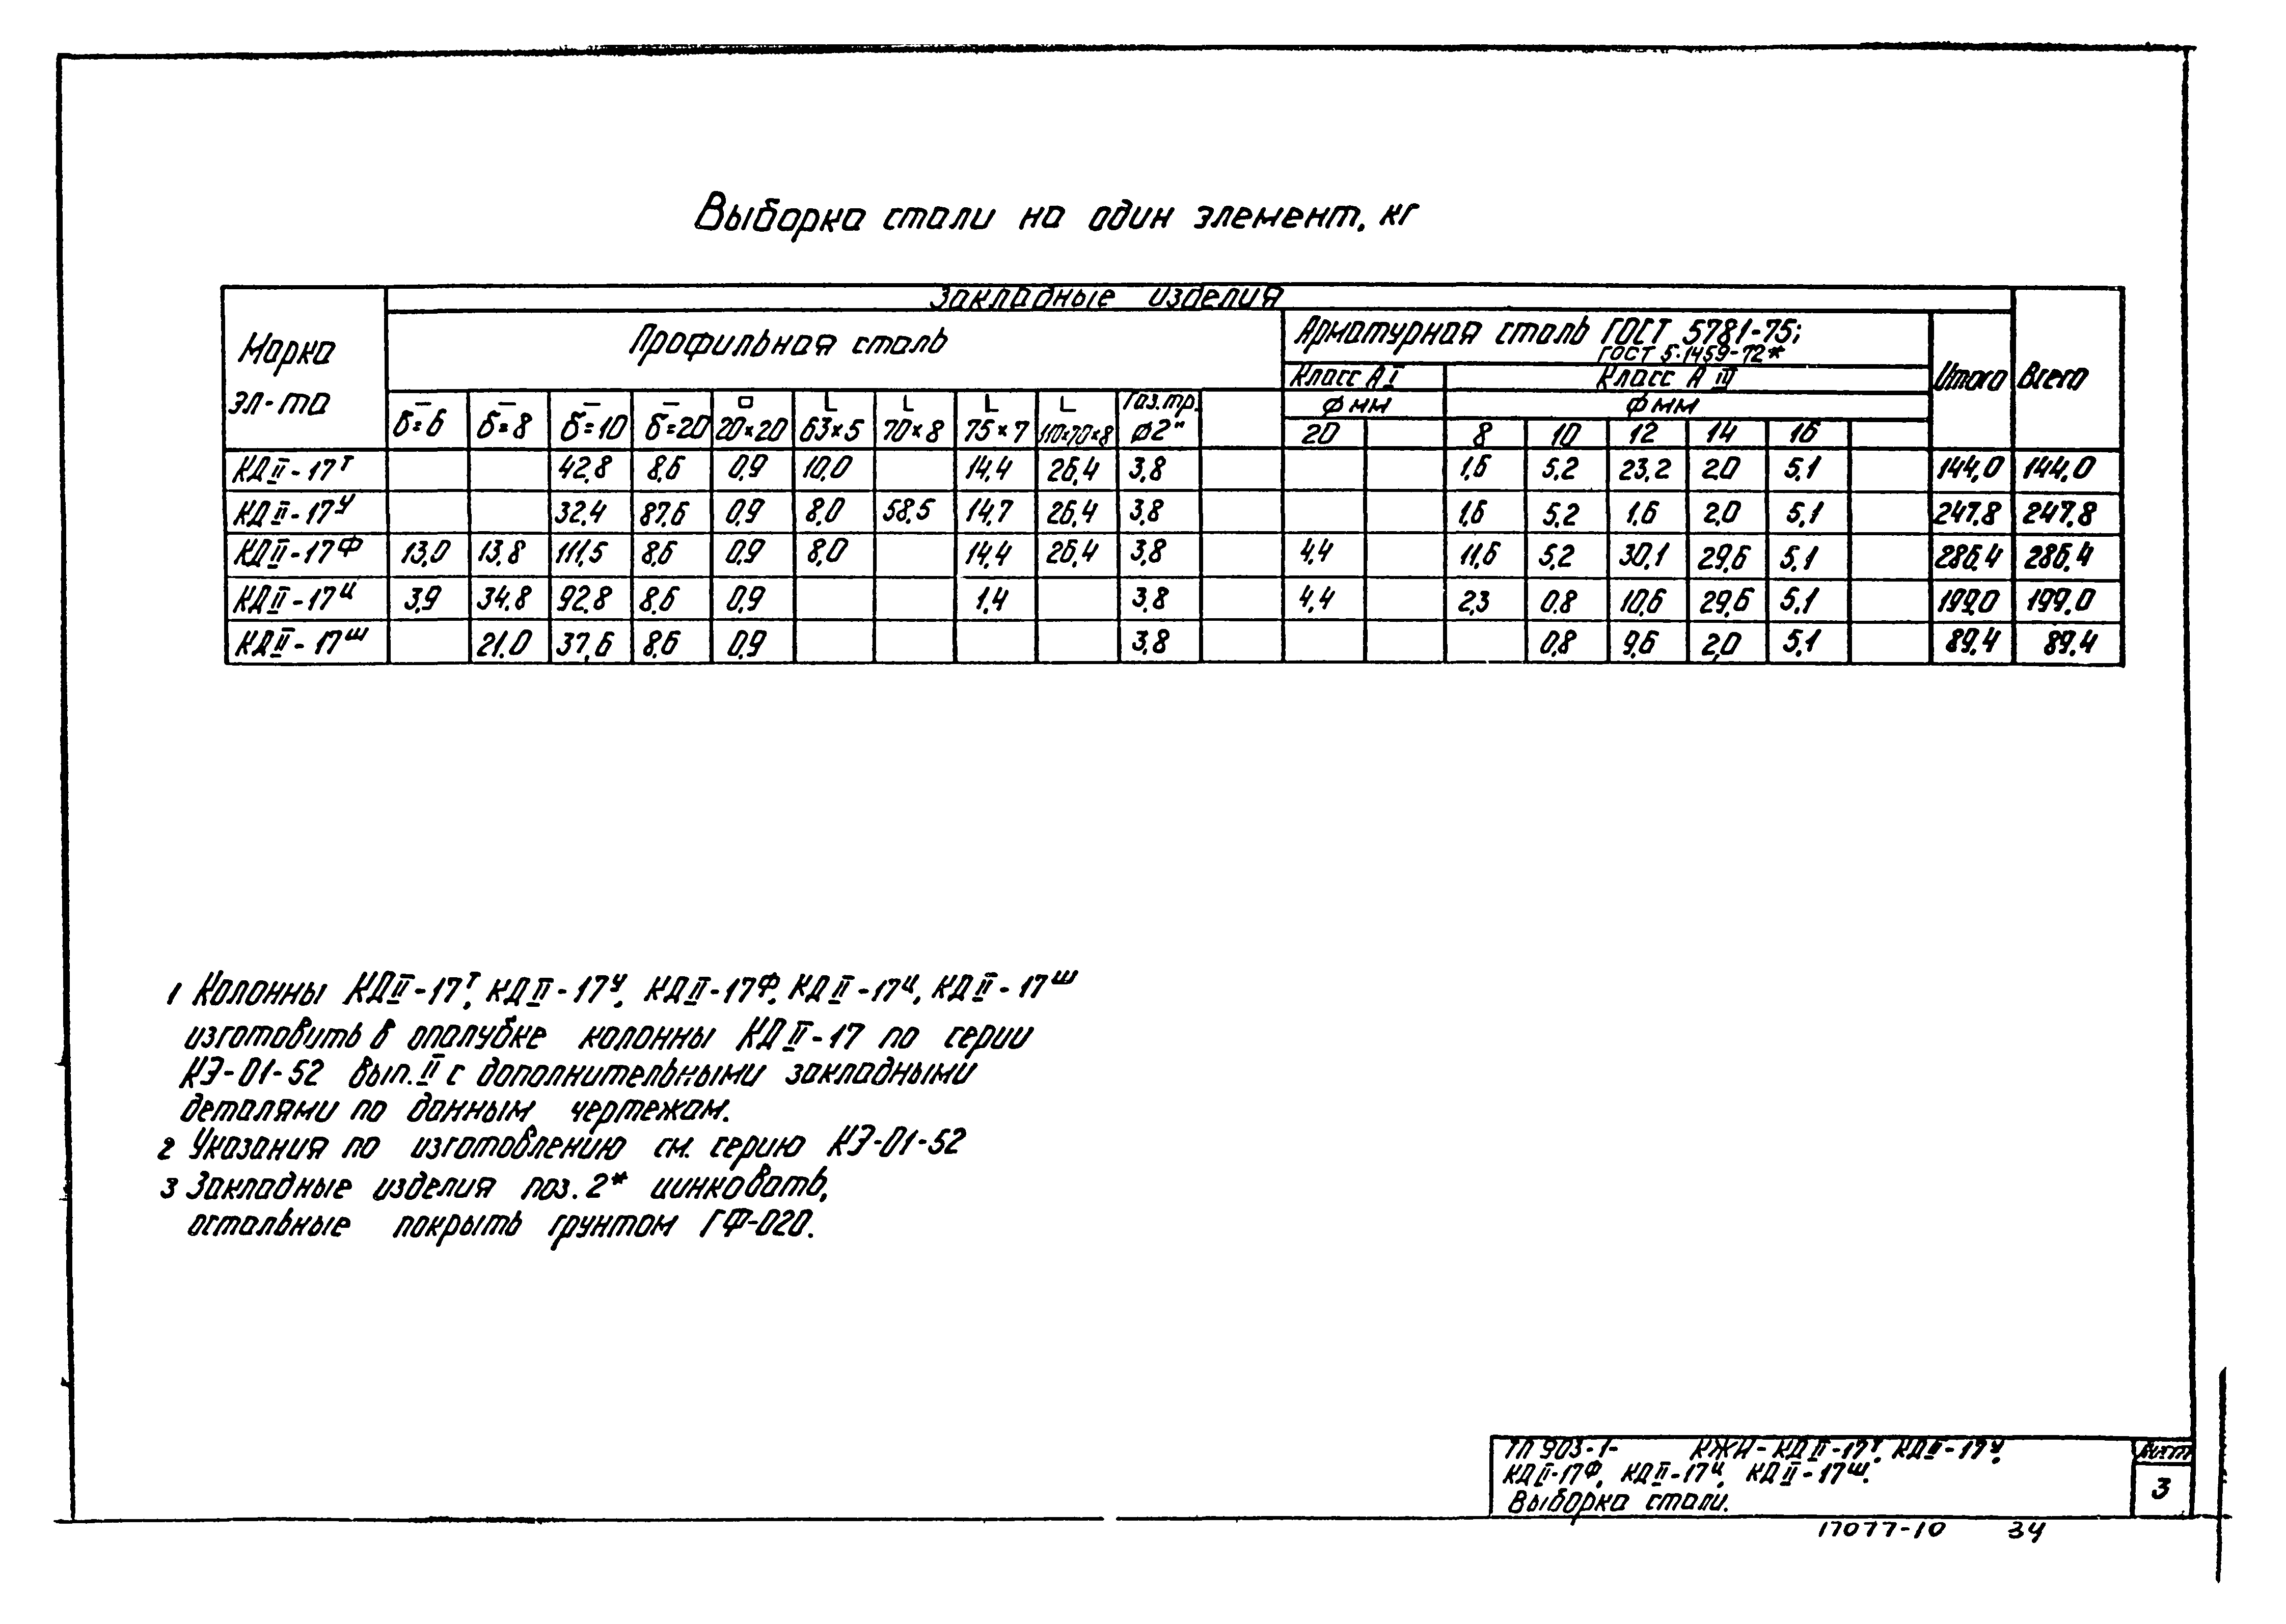 Выборка стали на один элемент, кг
Закладные изделия
Марка эл-та
Профильная сталь
Арматурная сталь ГОСТ 5781-75;
ГОСТ 5.1459-72*
Итого
Всего
Класс А I
Класс А III
ф мм
ф мм
δ=6 δ=8 δ=10 δ=20 20×20 63×5 70×8 75×7 110×70×8 Газ.тр. ø2" 20 8 10 12 14 16
КДII-17Т 42,8 8,6 0,9 10,0 14,4 26,4 3,8 1,6 5,2 23,2 2,0 5,1 144,0 144,0
КДII-17У 32,4 87,6 0,9 8,0 58,5 14,7 26,4 3,8 1,6 5,2 1,6 2,0 5,1 247,8 247,8
КДII-17Ф 13,0 13,8 111,5 8,6 0,9 8,0 14,4 26,4 3,8 4,4 11,6 5,2 30,1 29,6 5,1 286,4 286,4
КДII-17Ц 3,9 34,8 92,8 8,6 0,9 1,4 3,8 4,4 2,3 0,8 10,6 29,6 5,1 199,0 199,0
КДII-17Ш 21,0 37,6 8,6 0,9 3,8 0,8 9,6 2,0 5,1 89,4 89,4
1 Колонны КДII-17Т, КДII-17У, КДII-17Ф, КДII-17Ц, КДII-17Ш
изготовить в опалубке колонны КДII-17 по серии
КЭ-01-52 вып. II с дополнительными закладными
деталями по данным чертежам.
2 Указания по изготовлению см. серию КЭ-01-52
3 Закладные изделия поз. 2* цинковать,
остальные покрыть грунтом ГФ-020.
ТП 903-1- КЖИ-КДII-17Т, КДII-17У,
КДII-17Ф, КДII-17Ц, КДII-17Ш.
Выборка стали.
Лист
3
17077-10 34